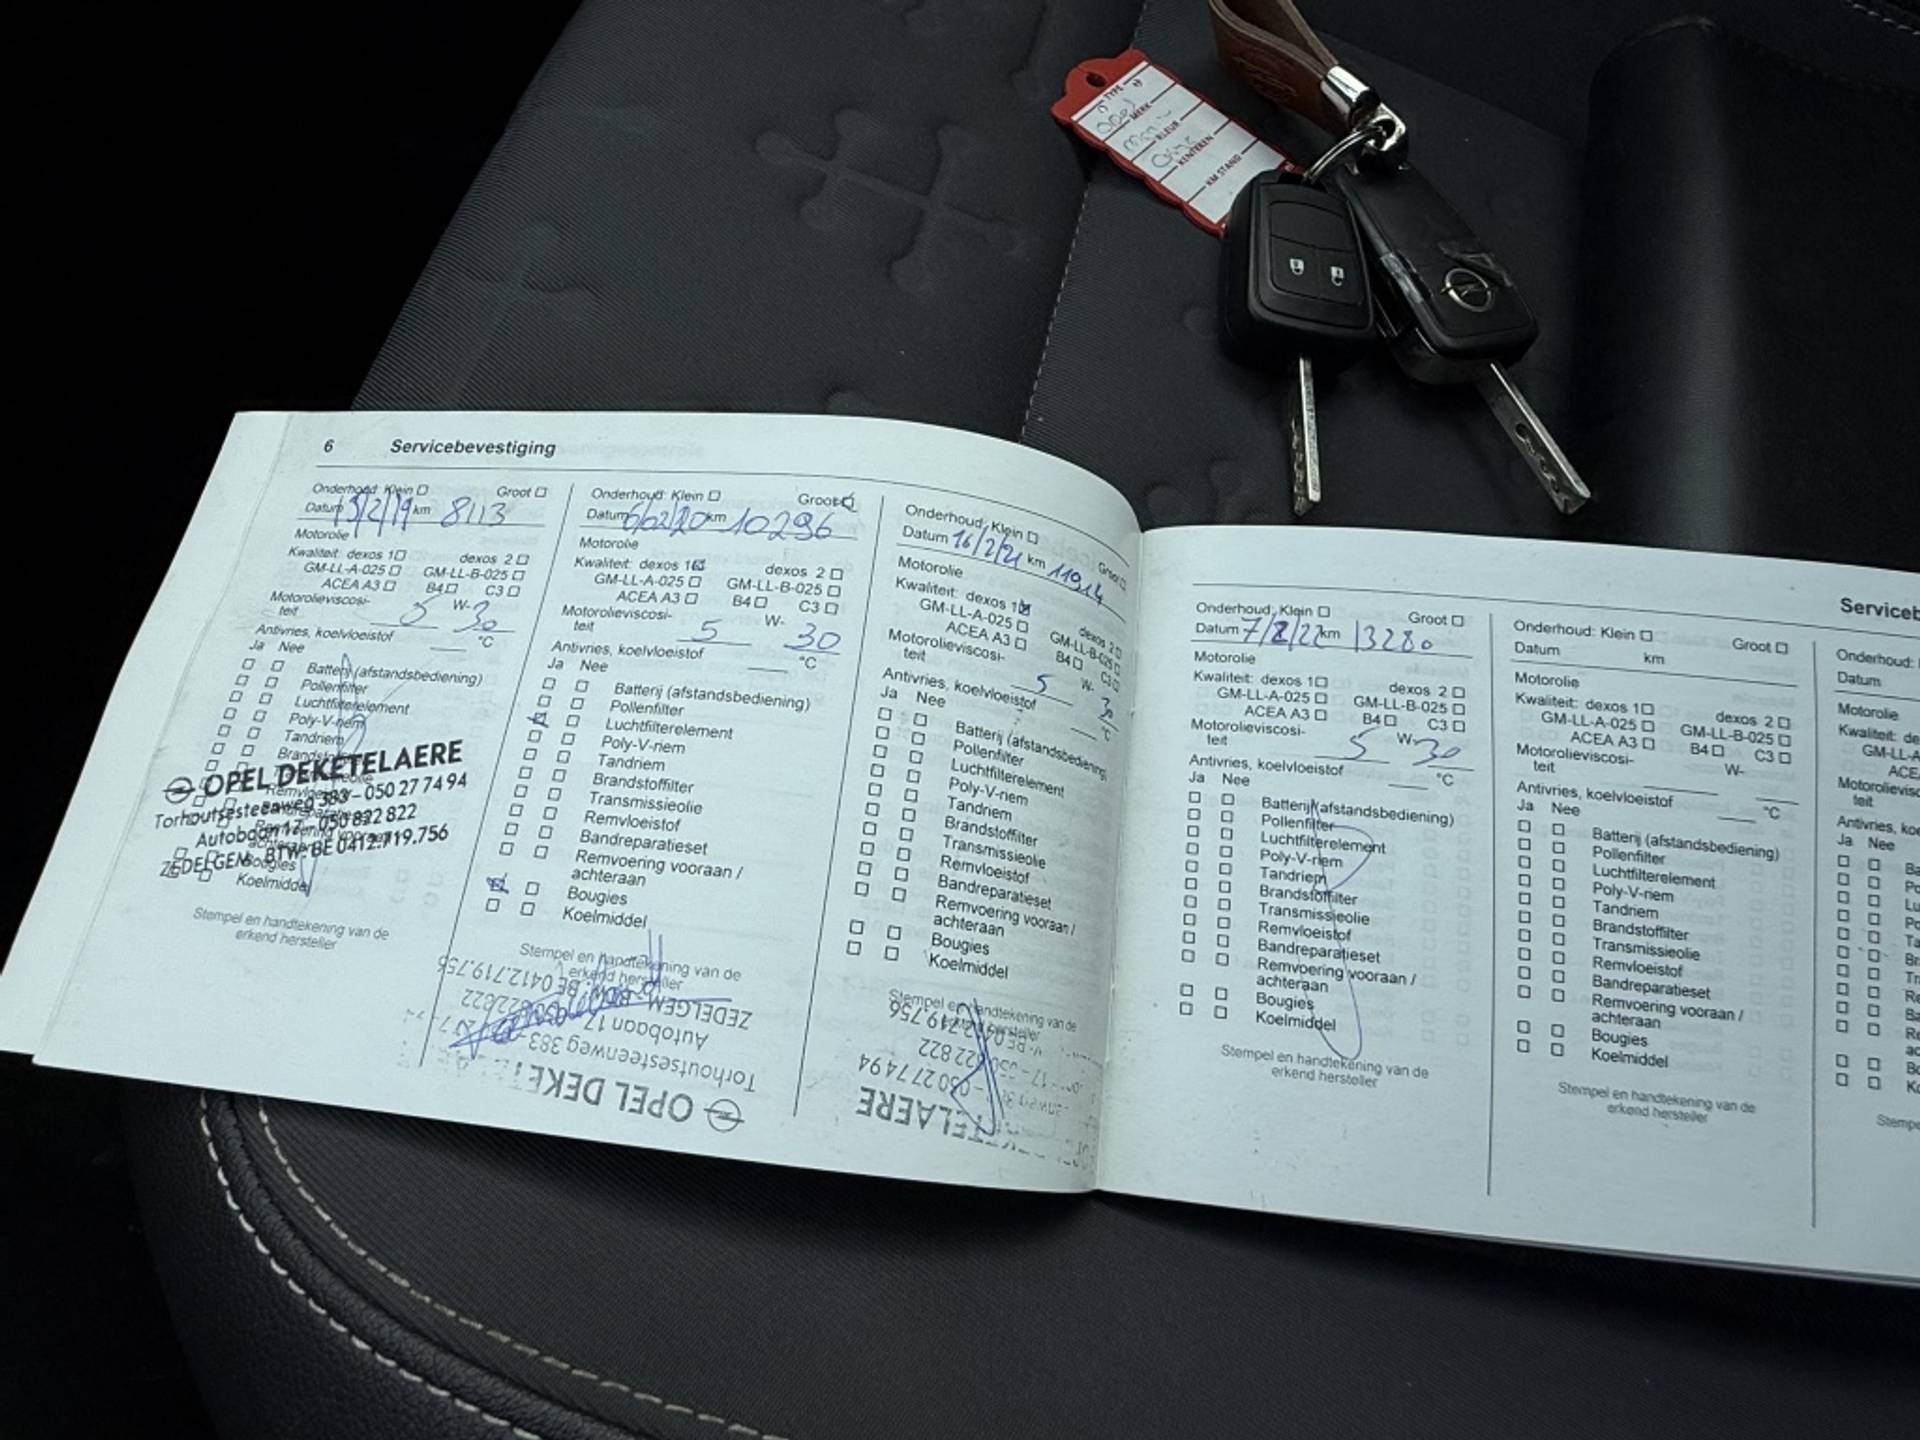 TYPE
Opel
MERK
KLEUR
KENTEKEN
KM STAND
6 Servicebevestiging
Onderhoud: Klein ☐ Groot ☐
Datum 13/2/19 km 8113
Motorolie
Kwaliteit: dexos 1☐ dexos 2 ☐
GM-LL-A-025 ☐ GM-LL-B-025 ☐
ACEA A3 ☐ B4☐ C3 ☐
Motorolieviscosi-
teit 5 W- 30
Antivries, koelvloeistof °C
Ja Nee
☐ ☐ Batterij (afstandsbediening)
☐ ☐ Pollenfilter
☐ ☐ Luchtfilterelement
☐ ☐ Poly-V-riem
☐ ☐ Tandriem
OPEL DEKETELAERE
Torhoutsesteenweg 383 - 050 27 74 94
Autobaan 17 - 050 822 822
ZEDELGEM BTW-BE 0412.719.756
Bougies
Koelmiddel
Stempel en handtekening van de
erkend hersteller
Onderhoud: Klein ☐ Groot ☒
Datum 6/02/20 km 10296
Motorolie
Kwaliteit: dexos 1☒ dexos 2 ☐
GM-LL-A-025 ☐ GM-LL-B-025 ☐
ACEA A3 ☐ B4☐ C3 ☐
Motorolieviscosi-
teit 5 W- 30
Antivries, koelvloeistof °C
Ja Nee
☐ ☐ Batterij (afstandsbediening)
☐ ☐ Pollenfilter
☒ ☐ Luchtfilterelement
☐ ☐ Poly-V-riem
☐ ☐ Tandriem
☐ ☐ Brandstoffilter
☐ ☐ Transmissieolie
☐ ☐ Remvloeistof
☐ ☐ Bandreparatieset
☐ ☐ Remvoering vooraan /
achteraan
☒ ☐ Bougies
☐ ☐ Koelmiddel
Stempel en handtekening van de
erkend hersteller
OPEL DEKE
Torhoutsesteenweg 383
Autobaan 17
ZEDELGEM BTW-BE 0412.719.756
Onderhoud: Klein ☐ Groot ☐
Datum 16/2/21 km 11914
Motorolie
Kwaliteit: dexos 1☒ dexos 2 ☐
GM-LL-A-025 ☐ GM-LL-B-025 ☐
ACEA A3 ☐ B4☐ C3☐
Motorolieviscosi-
teit 5 W- 30
Antivries, koelvloeistof °C
Ja Nee
☐ ☐ Batterij (afstandsbediening)
☐ ☐ Pollenfilter
☐ ☐ Luchtfilterelement
☐ ☐ Poly-V-riem
☐ ☐ Tandriem
☐ ☐ Brandstoffilter
☐ ☐ Transmissieolie
☐ ☐ Remvloeistof
☐ ☐ Bandreparatieset
☐ ☐ Remvoering vooraan /
achteraan
☐ ☐ Bougies
☐ ☐ Koelmiddel
Stempel en handtekening van de
TELAERE
050 27 74 94
822
719.756
Serviceb
Onderhoud: Klein ☐ Groot ☐
Datum 7/2/22 km 13280
Motorolie
Kwaliteit: dexos 1☐ dexos 2 ☐
GM-LL-A-025 ☐ GM-LL-B-025 ☐
ACEA A3 ☐ B4☐ C3 ☐
Motorolieviscosi-
teit 5 W- 30
Antivries, koelvloeistof °C
Ja Nee
☐ ☐ Batterij (afstandsbediening)
☐ ☐ Pollenfilter
☐ ☐ Luchtfilterelement
☐ ☐ Poly-V-riem
☐ ☐ Tandriem
☐ ☐ Brandstoffilter
☐ ☐ Transmissieolie
☐ ☐ Remvloeistof
☐ ☐ Bandreparatieset
☐ ☐ Remvoering vooraan /
achteraan
☐ ☐ Bougies
☐ ☐ Koelmiddel
Stempel en handtekening van de
erkend hersteller
Onderhoud: Klein ☐ Groot ☐
Datum km
Motorolie
Kwaliteit: dexos 1☐ dexos 2 ☐
GM-LL-A-025 ☐ GM-LL-B-025 ☐
ACEA A3 ☐ B4☐ C3 ☐
Motorolieviscosi-
teit W-
Antivries, koelvloeistof °C
Ja Nee
☐ ☐ Batterij (afstandsbediening)
☐ ☐ Pollenfilter
☐ ☐ Luchtfilterelement
☐ ☐ Poly-V-riem
☐ ☐ Tandriem
☐ ☐ Brandstoffilter
☐ ☐ Transmissieolie
☐ ☐ Remvloeistof
☐ ☐ Bandreparatieset
☐ ☐ Remvoering vooraan /
achteraan
☐ ☐ Bougies
☐ ☐ Koelmiddel
Stempel en handtekening van de
erkend hersteller
Onderhoud:
Datum
Motorolie
Kwaliteit: de
GM-LL-A
ACE
Motorolievisc
teit
Antivries, ko
Ja Nee
☐ ☐ Ba
☐ ☐ Po
☐ ☐ Lu
☐ ☐ Po
☐ ☐ Ta
☐ ☐ Br
☐ ☐ Tr
☐ ☐ Re
☐ ☐ Ba
☐ ☐ Re
ac
☐ ☐ Bo
☐ ☐ Ko
Stempe